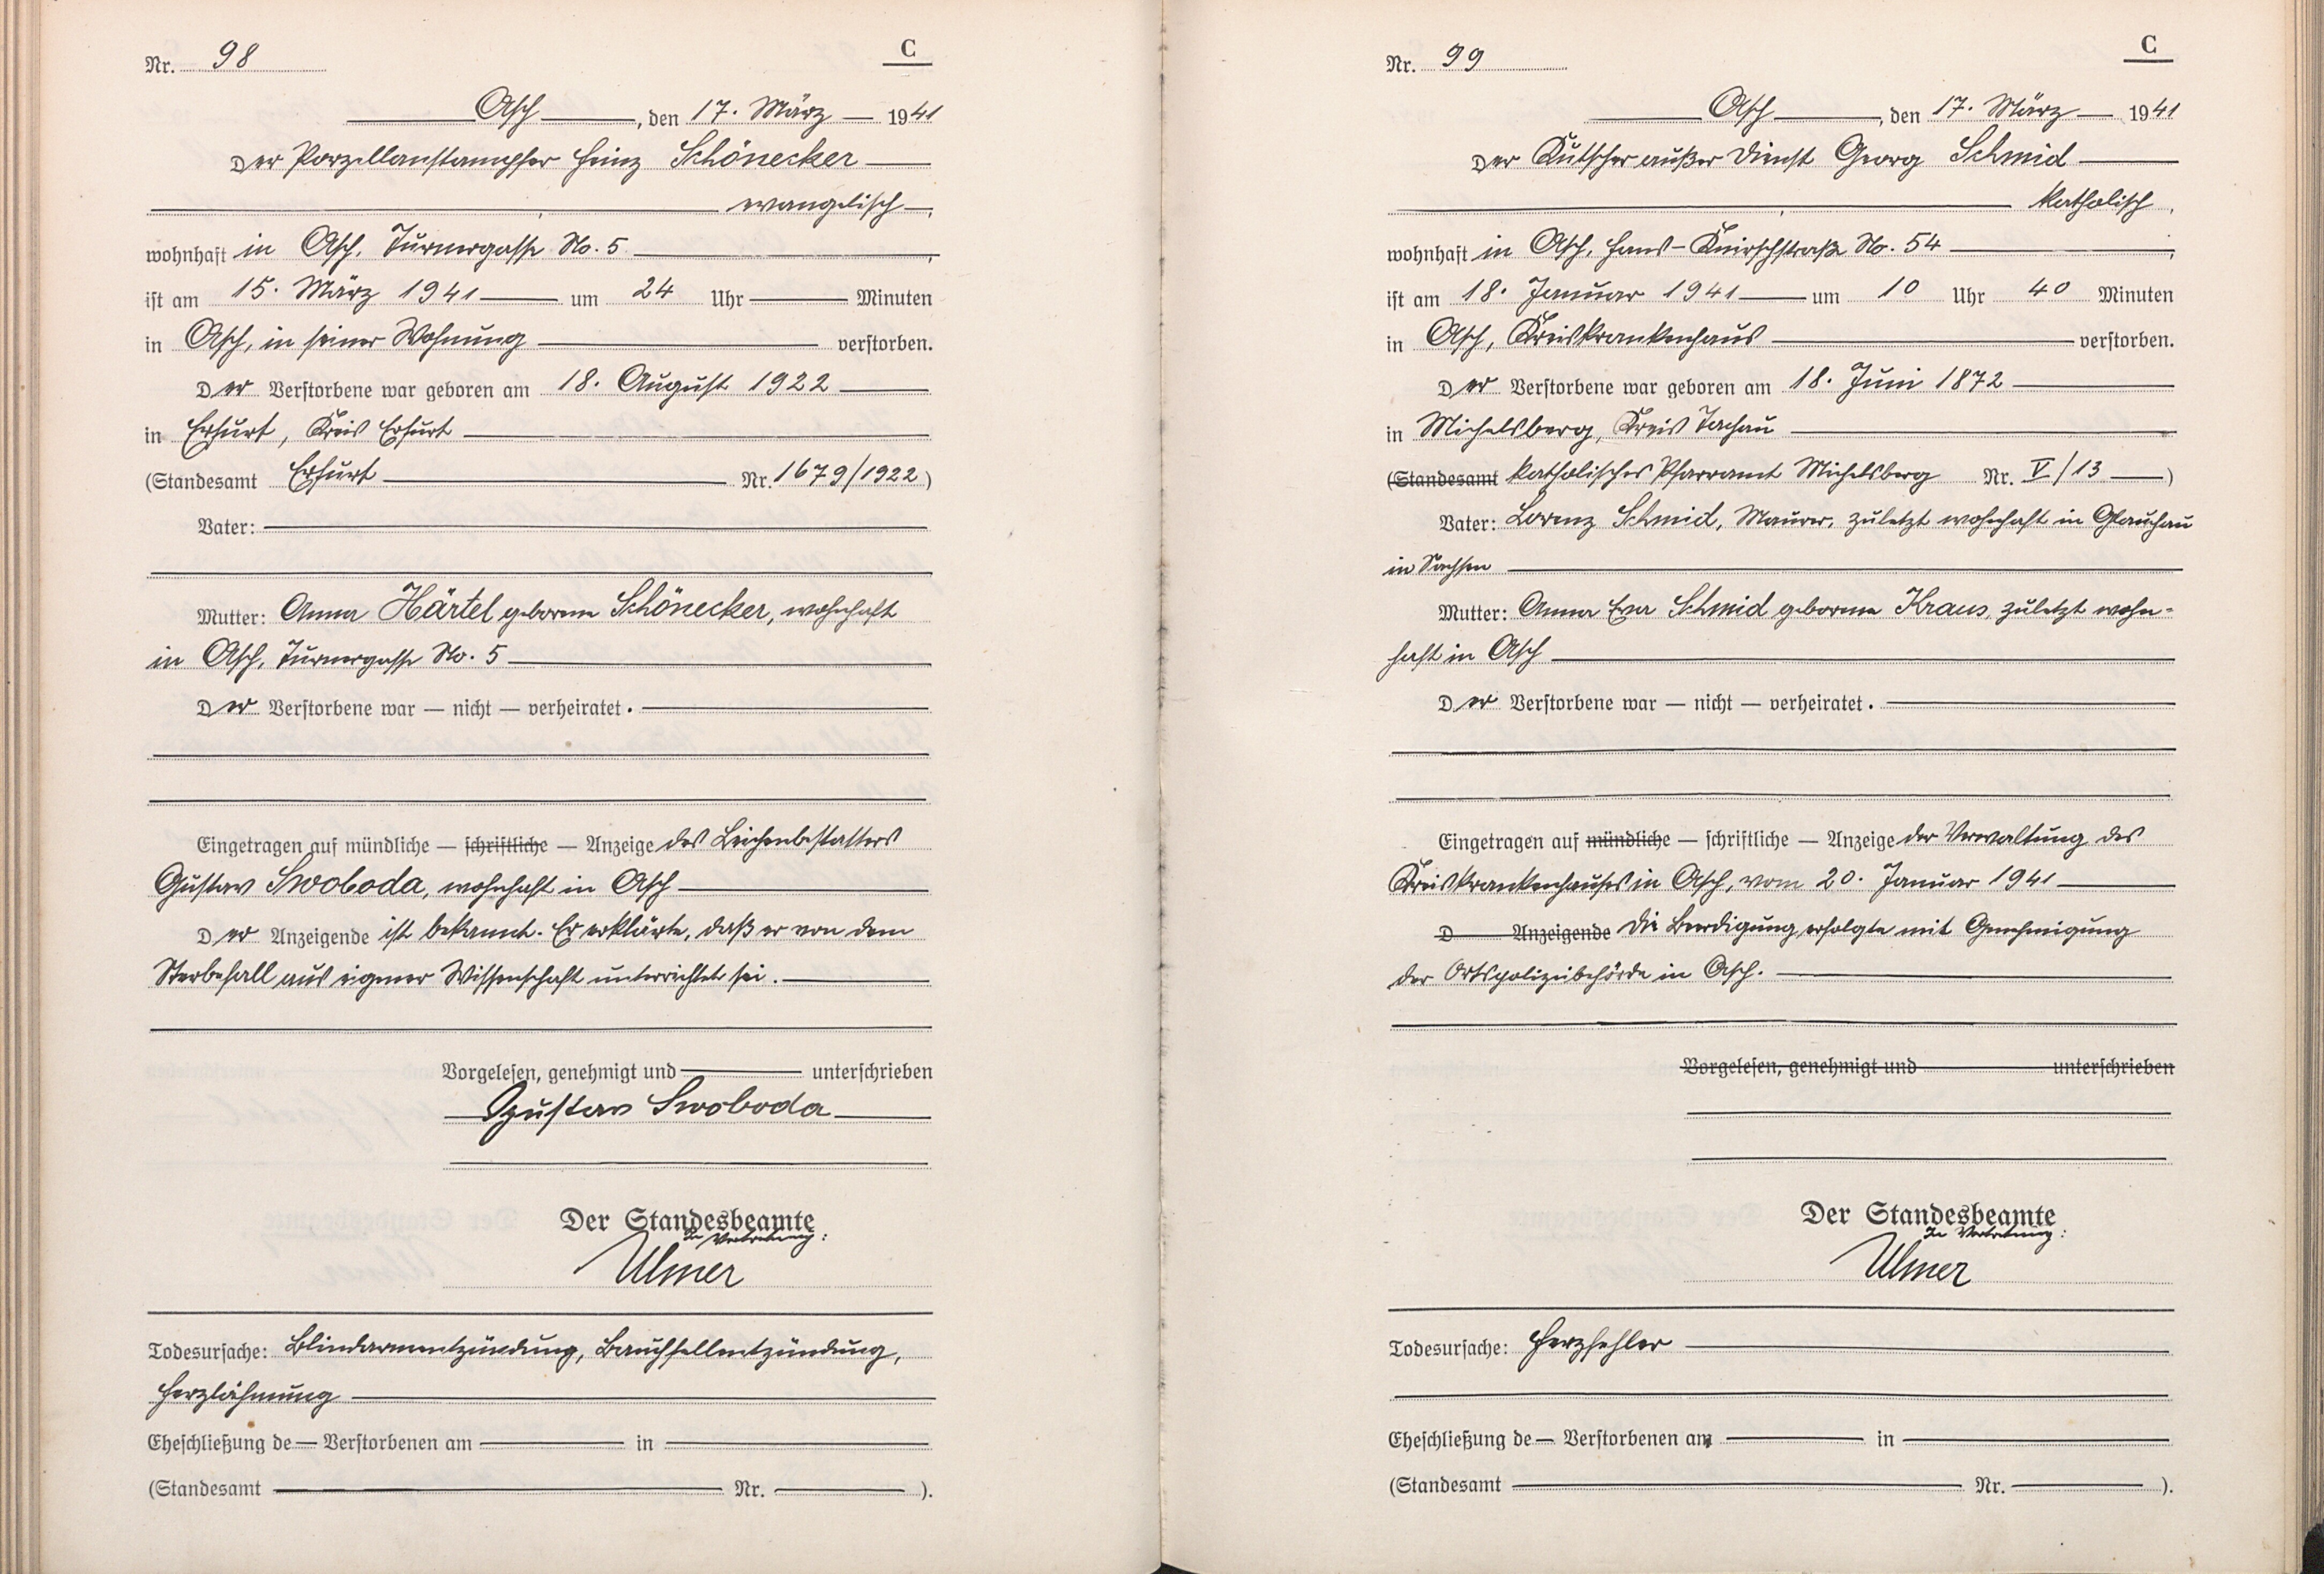 Nr. 98
C
Asch, den 17. März 1941
Der Porzellanstampfer Heinz Schönecker
evangelisch,
wohnhaft in Asch, Turnergasse No. 5,
ist am 15. März 1941 um 24 Uhr — Minuten
in Asch, in seiner Wohnung verstorben.
Der Verstorbene war geboren am 18. August 1922
in Erfurt, Kreis Erfurt
(Standesamt Erfurt Nr. 1679/1922)
Vater: —
Mutter: Anna Härtel geborene Schönecker, wohnhaft
in Asch, Turnergasse No. 5
Der Verstorbene war — nicht — verheiratet.
Eingetragen auf mündliche — schriftliche — Anzeige des Leichenbestatters
Gustav Swoboda, wohnhaft in Asch
Der Anzeigende ist bekannt. Er erklärte, daß er von dem
Sterbefall aus eigener Wissenschaft unterrichtet sei.
Vorgelesen, genehmigt und — unterschrieben
Gustav Swoboda
Der Standesbeamte
In Vertretung:
Ulmer
Todesursache: Blindarmentzündung, Bauchfellentzündung,
Herzlähmung
Eheschließung de— Verstorbenen am — in —
(Standesamt — Nr. — ).
Nr. 99
C
Asch, den 17. März 1941
Der Kutscher außer Dienst Georg Schmid
katholisch,
wohnhaft in Asch, Hans-Knirschstraße No. 54,
ist am 18. Januar 1941 um 10 Uhr 40 Minuten
in Asch, Kreiskrankenhaus verstorben.
Der Verstorbene war geboren am 18. Juni 1872
in Michelsberg, Kreis Tachau
(Standesamt katholisches Pfarramt Michelsberg Nr. V/13 —)
Vater: Lorenz Schmid, Maurer, zuletzt wohnhaft in Glauchau
in Sachsen
Mutter: Anna Eva Schmid geborene Kraus, zuletzt wohn-
haft in Asch
Der Verstorbene war — nicht — verheiratet.
Eingetragen auf mündliche — schriftliche — Anzeige der Verwaltung des
Kreiskrankenhauses in Asch, vom 20. Januar 1941
D— Anzeigende Die Beerdigung erfolgte mit Genehmigung
der Ortspolizeibehörde in Asch.
Vorgelesen, genehmigt und — unterschrieben
Der Standesbeamte
In Vertretung:
Ulmer
Todesursache: Herzfehler
Eheschließung de— Verstorbenen am — in —
(Standesamt — Nr. — ).